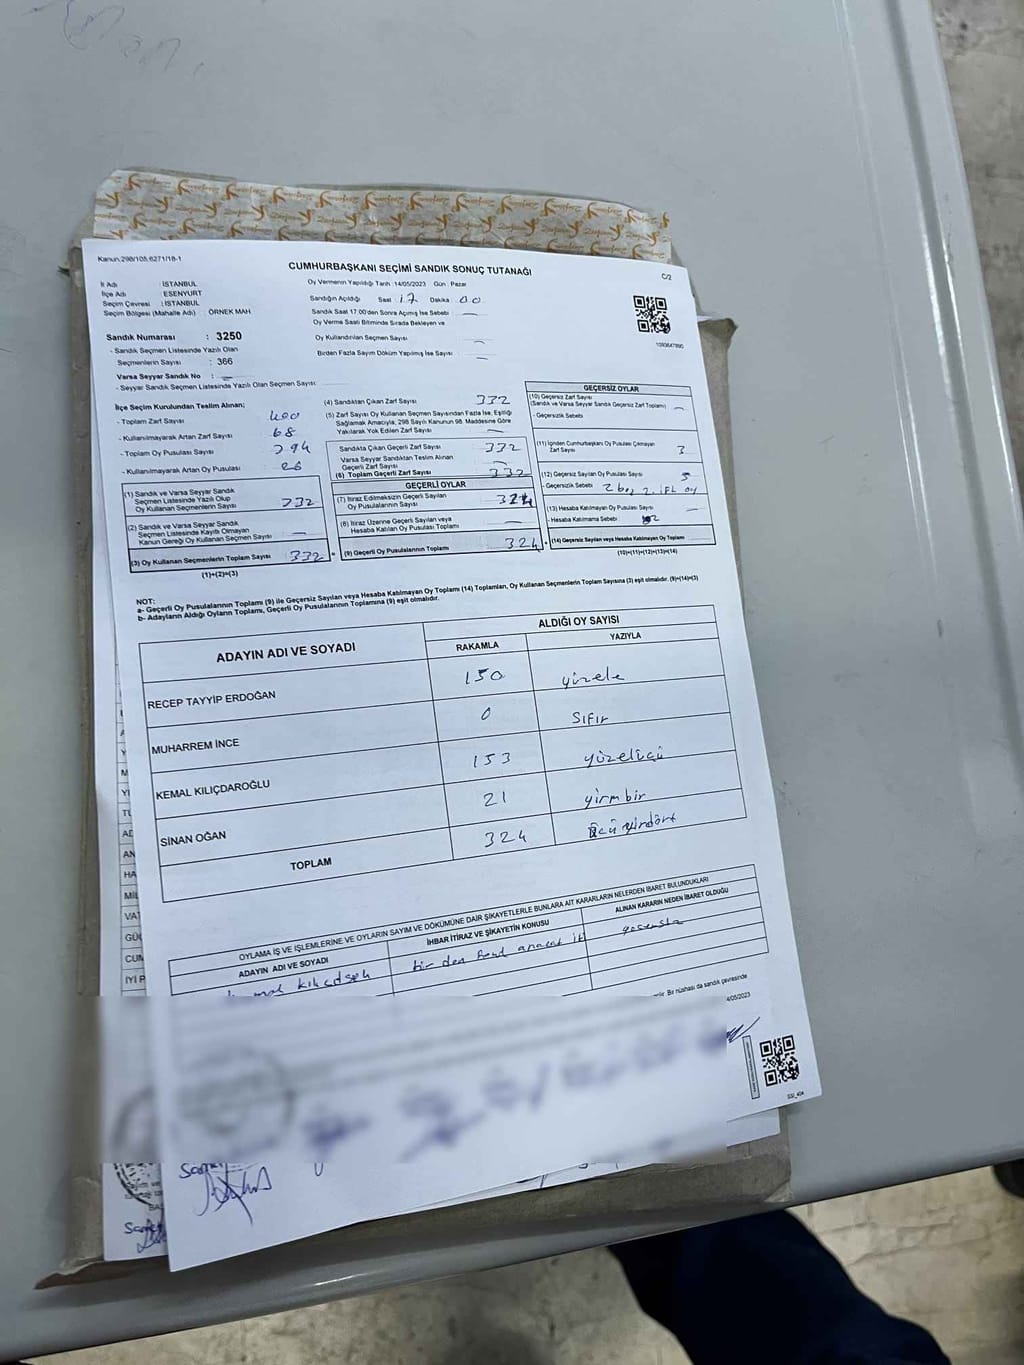 Kanun:298/105;6271/18-1
CUMHURBAŞKANI SEÇİMİ SANDIK SONUÇ TUTANAĞI
C/2
İl Adı : İSTANBUL
İlçe Adı : ESENYURT
Seçim Çevresi : İSTANBUL
Seçim Bölgesi (Mahalle Adı) : ÖRNEK MAH.
Sandık Numarası : 3250
- Sandık Seçmen Listesinde Yazılı Olan
Seçmenlerin Sayısı : 366
Varsa Seyyar Sandık No :
- Seyyar Sandık Seçmen Listesinde Yazılı Olan Seçmen Sayısı:
Oy Vermenin Yapıldığı Tarih :14/05/2023 Gün : Pazar
Sandığın Açıldığı Saat 17 Dakika 00
Sandık Saat 17:00'den Sonra Açılmış İse Sebebi
Oy Verme Saati Bitiminde Sırada Bekleyen ve
Oy Kullandırılan Seçmen Sayısı
Birden Fazla Sayım Döküm Yapılmış İse Sayısı
İlçe Seçim Kurulundan Teslim Alınan;
- Toplam Zarf Sayısı 400
- Kullanılmayarak Artan Zarf Sayısı 68
- Toplam Oy Pusulası Sayısı
- Kullanılmayarak Artan Oy Pusulası
(1) Sandık ve Varsa Seyyar Sandık
Seçmen Listesinde Yazılı Olup
Oy Kullanan Seçmenlerin Sayısı 332
(2) Sandık ve Varsa Seyyar Sandık
Seçmen Listesinde Kayıtlı Olmayan
Kanun Gereği Oy Kullanan Seçmen Sayısı
(3) Oy Kullanan Seçmenlerin Toplam Sayısı 332
(1)+(2)=(3)
(4) Sandıktan Çıkan Zarf Sayısı 332
(5) Zarf Sayısı Oy Kullanan Seçmen Sayısından Fazla İse, Eşitliği
Sağlamak Amacıyla, 298 Sayılı Kanunun 98. Maddesine Göre
Yakılarak Yok Edilen Zarf Sayısı
Sandıkta Çıkan Geçerli Zarf Sayısı 332
Varsa Seyyar Sandıktan Teslim Alınan
Geçerli Zarf Sayısı
(6) Toplam Geçerli Zarf Sayısı 332
GEÇERLİ OYLAR
(7) İtiraz Edilmeksizin Geçerli Sayılan
Oy Pusulalarının Sayısı 324
(8) İtiraz Üzerine Geçerli Sayılan veya
Hesaba Katılan Oy Pusulası Toplamı
(9) Geçerli Oy Pusulalarının Toplamı 324
GEÇERSİZ OYLAR
(10) Geçersiz Zarf Sayısı
(Sandık ve Varsa Seyyar Sandık Geçersiz Zarf Toplamı)
- Geçersizlik Sebebi
(11) İçinden Cumhurbaşkanı Oy Pusulası Çıkmayan
Zarf Sayısı 3
(12) Geçersiz Sayılan Oy Pusulası Sayısı 5
- Geçersizlik Sebebi
(13) Hesaba Katılmayan Oy Pusulası Sayısı
- Hesaba Katılmama Sebebi
(14) Geçersiz Sayılan veya Hesaba Katılmayan Oy Toplamı
(10)+(11)+(12)+(13)=(14)
NOT:
a- Geçerli Oy Pusulalarının Toplamı (9) ile Geçersiz Sayılan veya Hesaba Katılmayan Oy Toplamı (14) Toplamları, Oy Kullanan Seçmenlerin Toplam Sayısına (3) eşit olmalıdır. (9)+(14)=(3)
b- Adayların Aldığı Oyların Toplamı, Geçerli Oy Pusulalarının Toplamına (9) eşit olmalıdır.
ADAYIN ADI VE SOYADI
ALDIĞI OY SAYISI
RAKAMLA YAZIYLA
RECEP TAYYİP ERDOĞAN 150 yüzele
MUHARREM İNCE 0 Sıfır
KEMAL KILIÇDAROĞLU 153 yüzelüçü
SİNAN OĞAN 21 yirmbir
TOPLAM 324
OYLAMA İŞ VE İŞLEMLERİNE VE OYLARIN SAYIM VE DÖKÜMÜNE DAİR ŞİKAYETLERLE BUNLARA AİT KARARLARIN NELERDEN İBARET BULUNDUKLARI
ADAYIN ADI VE SOYADI İHBAR İTİRAZ VE ŞİKAYETİN KONUSU ALINAN KARARIN NEDEN İBARET OLDUĞU
bir den
Bir nüshası da sandık çevresinde
4/05/2023